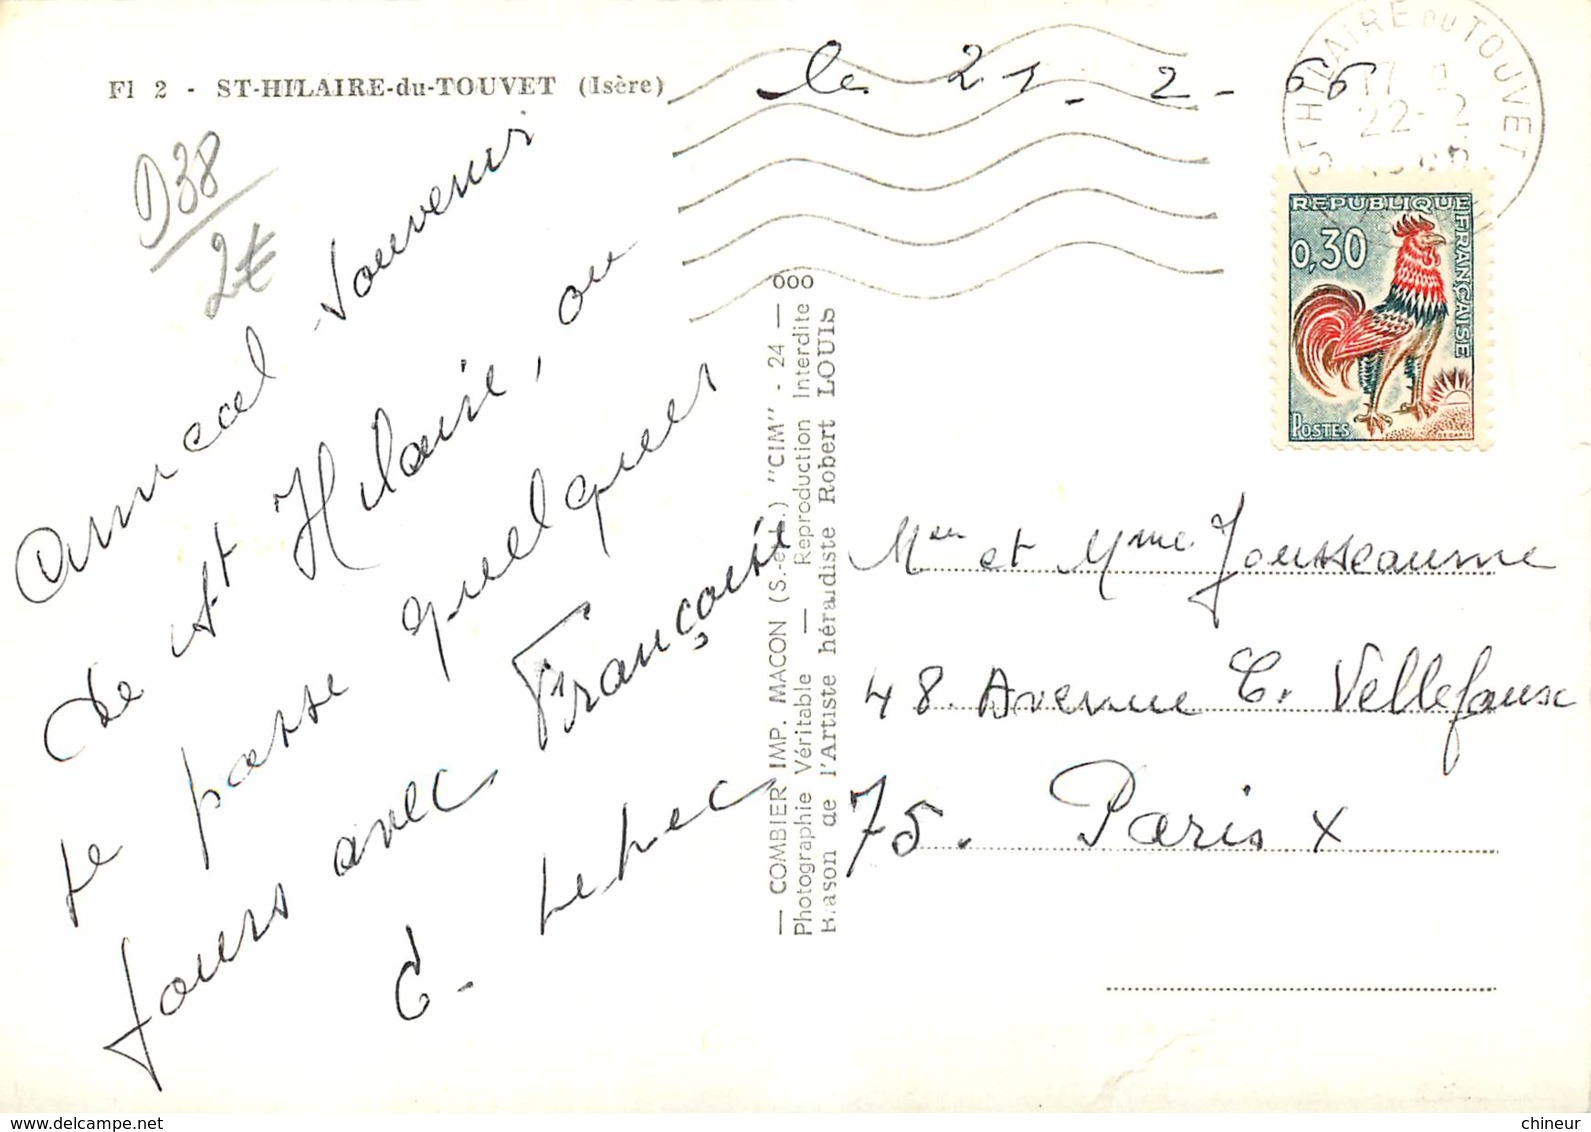 Fl 2 - ST-HILAIRE-du-TOUVET (Isère)
le 21-2-66
D38
2€
Amical souvenir
de St Hilaire, où
je passe quelques
jours avec Françoise
C. 
ST HILAIRE DU TOUVET
17 H
22-2
REPUBLIQUE FRANÇAISE
0,30
POSTES
DECARIS
— COMBIER IMP. MACON (S.-et-L.) "CIM" - 24 — 000
Photographie Véritable — Reproduction Interdite
Blason de l'Artiste héraldiste Robert LOUIS
et Mme Jousseaume
48 Avenue C. Vellefaux
75. Paris X
delcampe.net
chineur